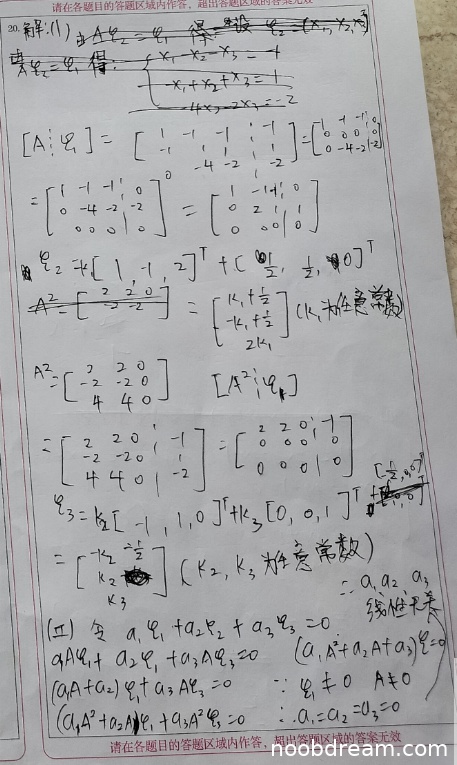 请在各题目的答题区域内作答，超出答题区域的答案无效
20. 解:(1) 由Aξ₂=ξ₁ 得 设 ξ₂=(x₁,x₂,x₃)ᵀ
Aξ₂=ξ₁ 得: x₁-x₂-x₃=-1
-x₁+x₂+x₃=1
-4x₂-2x₃=-2
[A⋮ξ₁] = [1 -1 -1 ⋮ -1; -1 1 1 ⋮ 1; 0 -4 -2 ⋮ -2] = [1 -1 -1 ⋮ 0; 0 0 0 ⋮ 0; 0 -4 -2 | -2]
= [1 -1 -1 ⋮ 0; 0 -4 -2 | -2; 0 0 0 | 0] = [1 -1 -1 ⋮ 0; 0 2 1 | 1; 0 0 0 | 0]
ξ₂=k₁[1, -1, 2]ᵀ + [½, ½, 0]ᵀ
A² = [2 2 0; -2 -2] = [k₁+½; -k₁+½; 2k₁] (k₁为任意常数)
A² = [2 2 0; -2 -2 0; 4 4 0] [A²⋮ξ₁]
= [2 2 0 ⋮ -1; -2 -2 0 ⋮ 1; 4 4 0 | -2] = [2 2 0 ⋮ -1; 0 0 0 ⋮ 0; 0 0 0 | 0]
ξ₃=k₂[-1, 1, 0]ᵀ+k₃[0, 0, 1]ᵀ+[-½, 0, 0]ᵀ
= [-k₂-½; k₂; k₃] (k₂, k₃为任意常数)
∴ a₁ a₂ a₃
线性无关
(Ⅱ) 令 a₁ξ₁+a₂ξ₂+a₃ξ₃=0
a₁Aξ₁+a₂ξ₁+a₃Aξ₃=0 (a₁A²+a₂A+a₃)ξ=0
(a₁A+a₂)ξ₁+a₃Aξ₃=0 ∵ ξ₁≠0 A≠0
(a₁A²+a₂A)ξ₁+a₃A²ξ₃=0 ∴a₁=a₂=a₃=0
请在各题目的答题区域内作答，超出答题区域的答案无效
noobdream.com